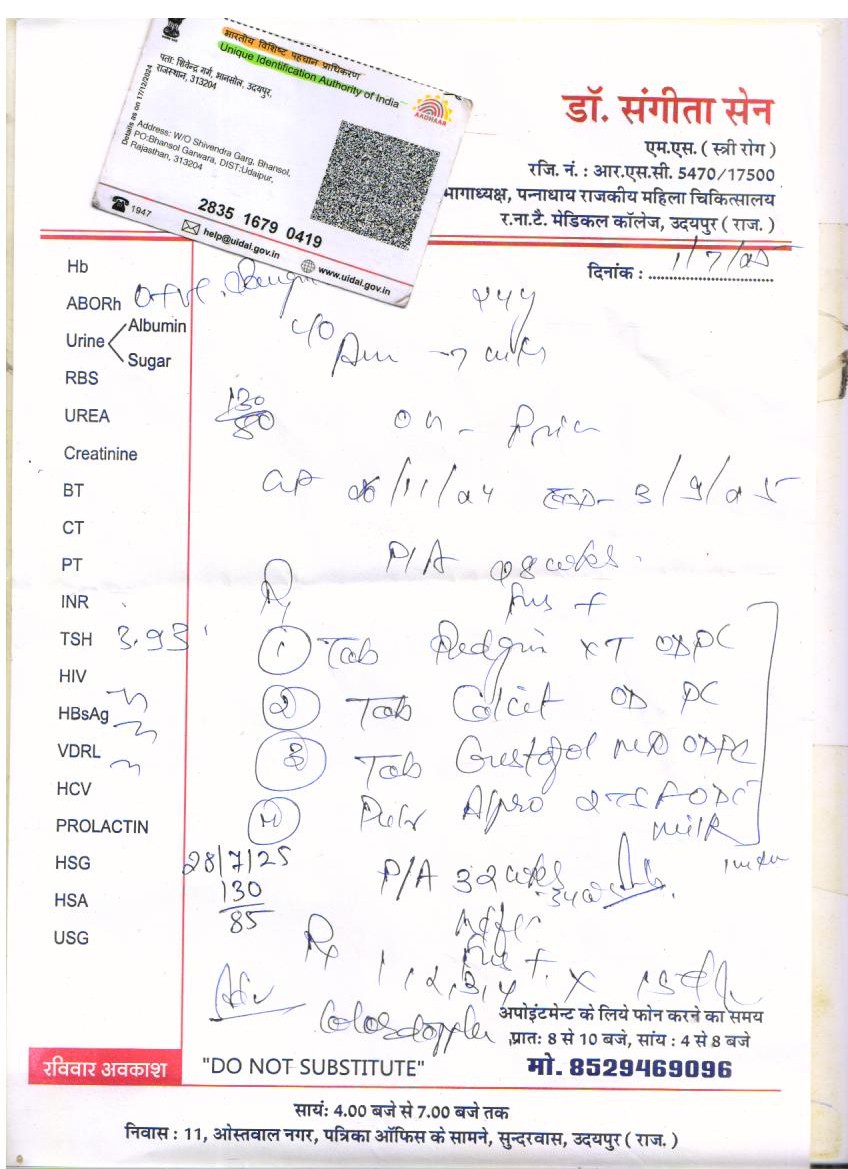 भारतीय विशिष्ट पहचान प्राधिकरण
Unique Identification Authority of India
AADHAAR
Details as on 17/12/2024
पता: शिवेन्द्र गर्ग, भानसोल, उदयपुर,
राजस्थान, 313204
Address: W/O Shivendra Garg, Bhansol,
PO:Bhansol Garwara, DIST:Udaipur,
Rajasthan, 313204
2835 1679 0419
1947
help@uidai.gov.in
www.uidai.gov.in
डॉ. संगीता सेन
एम.एस. ( स्त्री रोग )
रजि. नं. : आर.एस.सी. 5470/17500
भागाध्यक्ष, पन्नाधाय राजकीय महिला चिकित्सालय
र.ना.टै. मेडिकल कॉलेज, उदयपुर ( राज. )
दिनांक : 1/7/25
Hb
ABORh O+ve
Urine Albumin
Sugar
RBS
UREA
Creatinine
BT
CT
PT
INR
TSH 3.93
HIV
HBsAg
VDRL
HCV
PROLACTIN
HSG
HSA
USG
24y
C/O
130/80
O/E
3/9/25
P/A 28 wks
Rx
1 Tab XT OD PC
2 Tab Calcit OD PC
3 Tab OD PC
4
milk
28/7/25
130/85
P/A 32 wks
34 w
Rx 1, 2, 3, 4 x 15
Adv
Color doppler
अपोइंटमेन्ट के लिये फोन करने का समय
प्रात: 8 से 10 बजे, सांय : 4 से 8 बजे
मो. 8529469096
रविवार अवकाश
"DO NOT SUBSTITUTE"
सायं: 4.00 बजे से 7.00 बजे तक
निवास : 11, ओस्तवाल नगर, पत्रिका ऑफिस के सामने, सुन्दरवास, उदयपुर ( राज. )